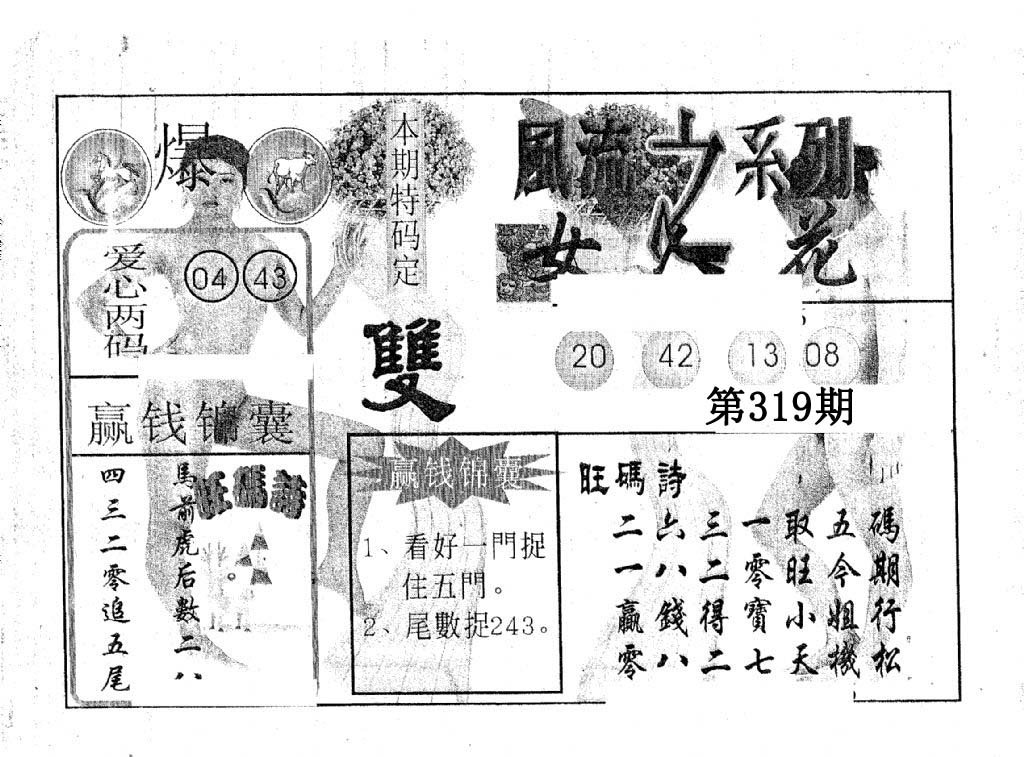 爆
本期特码定
雙
风流之系列
女人花
爱心两码
04 43
20 42 13 08
第319期
赢钱锦囊
馬前虎后数二八
四三二零追五尾
旺碼詩
赢钱锦囊
1、看好一門捉
住五門。
2、尾數捉243。
旺碼詩
碼期行松
五今姐機
取旺小天
一零寶七
三二得二
六八錢八
二一贏零